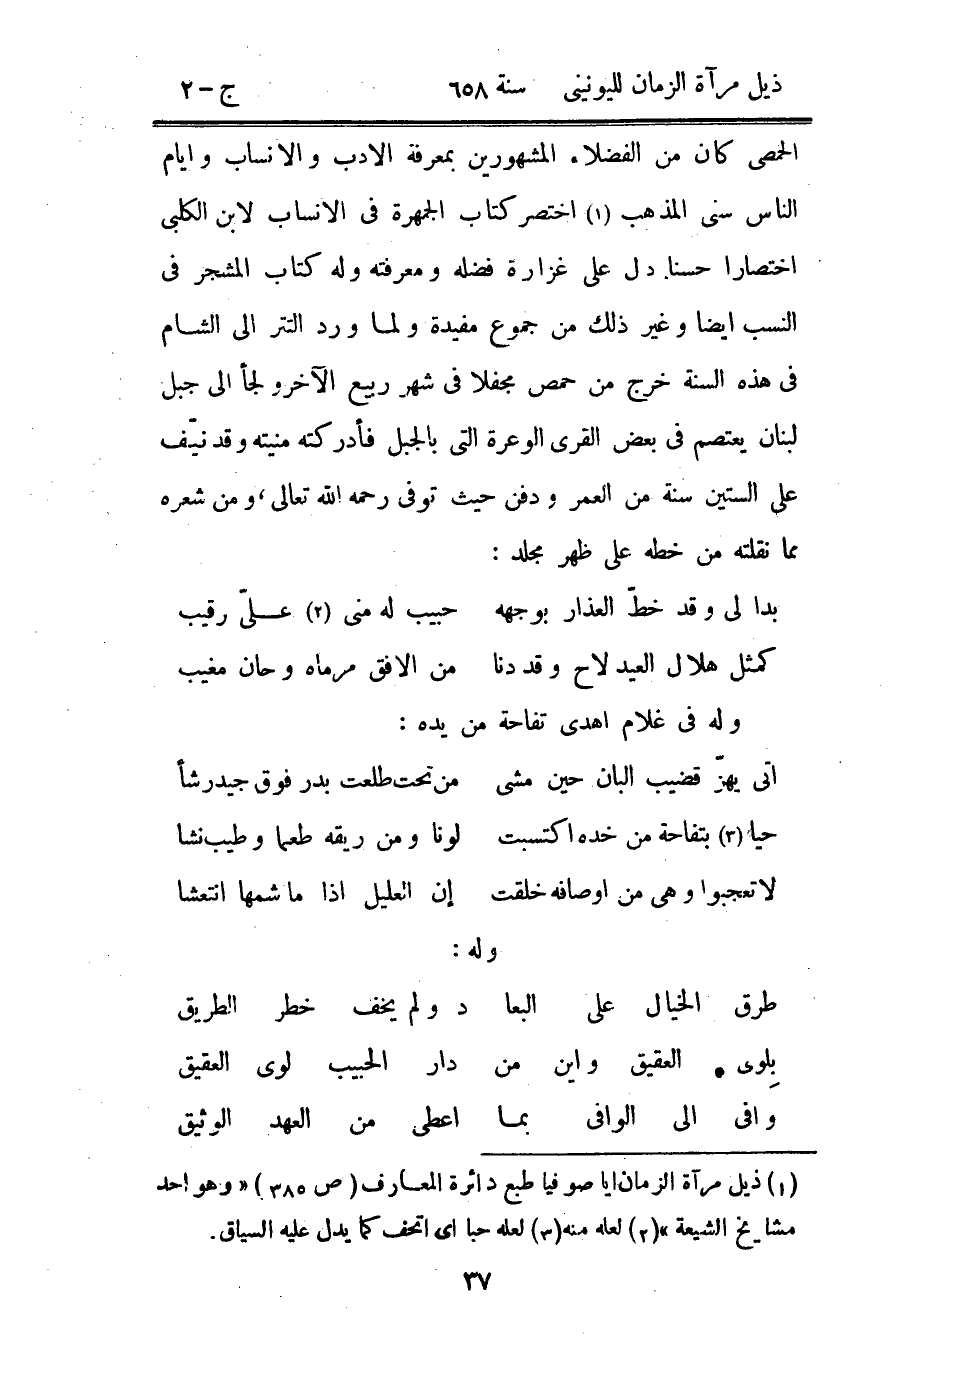 ذيل مرآة الزمان لليونينى سنة ٦٥٨ ج – ٢
الحمصى كان من الفضلاء المشهورين بمعرفة الادب والانساب وايام
الناس سنى المذهب (١) اختصر كتاب الجمهرة فى الانساب لابن الكلبى
اختصارا حسنا دل على غزارة فضله ومعرفته وله كتاب المشجر فى
النسب ايضا وغير ذلك من جموع مفيدة ولما ورد التتر الى الشام
فى هذه السنة خرج من حمص مجفلا فى شهر ربيع الآخر ولجأ الى جبل
لبنان يعتصم فى بعض القرى الوعرة التى بالجبل فأدركته منيته وقد نيّف
على الستين سنة من العمر ودفن حيث توفى رحمه الله تعالى، ومن شعره
مما نقلته من خطه على ظهر مجلد :
بدا لى وقد خطّ العذار بوجهه حبيب له منى (٢) علىّ رقيب
كمثل هلال العيد لاح وقد دنا من الافق مرماه وحان مغيب
وله فى غلام اهدى تفاحة من يده :
اتى يهزّ قضيب البان حين مشى من تحت طلعت بدر فوق جيد رشأ
حيا (٣) بتفاحة من خده اكتسبت لونا ومن ريقه طعما وطيب نشا
لا تعجبوا وهى من اوصافه خلقت إن العليل اذا ما شمها انتعشا
وله :
طرق الخيال على البعا د ولم يخف خطر الطريق
بِلوى العقيق واين من دار الحبيب لوى العقيق
وافى الى الوافى بما اعطى من العهد الوثيق
(١) ذيل مرآة الزمان ايا صوفيا طبع دائرة المعارف (ص ٣٨٥) «وهو احد
مشايخ الشيعة» (٢) لعله منه (٣) لعله حبا اى اتحف كما يدل عليه السياق.
٣٧